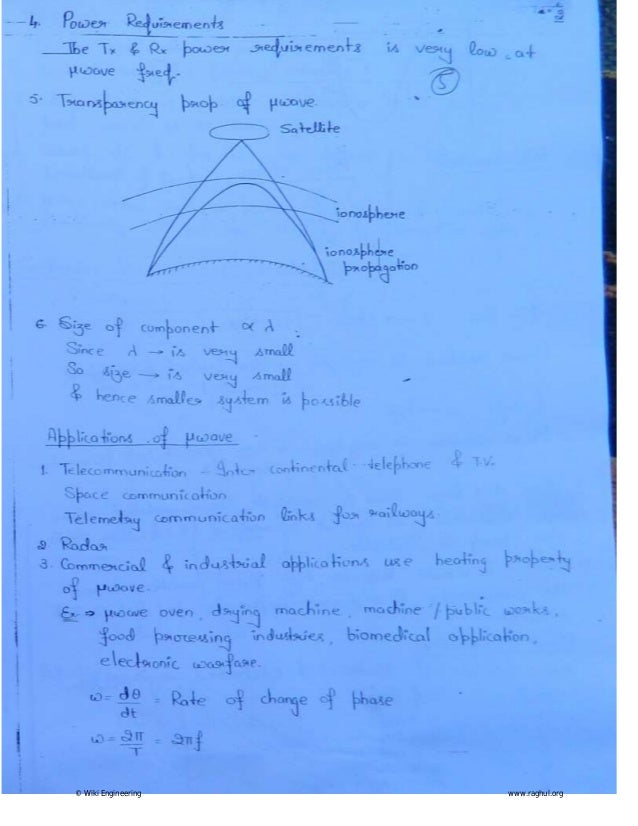 4. Power Requirements
The Tx & Rx power requirements is very low at
μwave freq.
5
5. Transparency prop of μwave.
Satellite
ionosphere
ionosphere
propagation
6 Size of component ∝ λ
Since λ → is very small
So size → is very small
& hence smaller system is possible
Applications of μwave
1. Telecommunication - Inter continental telephone & T.V.
Space communication
Telemetry communication links for railways
2 Radar
3. Commercial & industrial applications use heating property
of μwave.
Ex → μwave oven, drying machine, machine / public works,
food processing industries, biomedical application,
electronic warfare.
ω = dθ/dt = Rate of change of phase
ω = 2π/T = 2πf
© Wiki Engineering
www.raghul.org